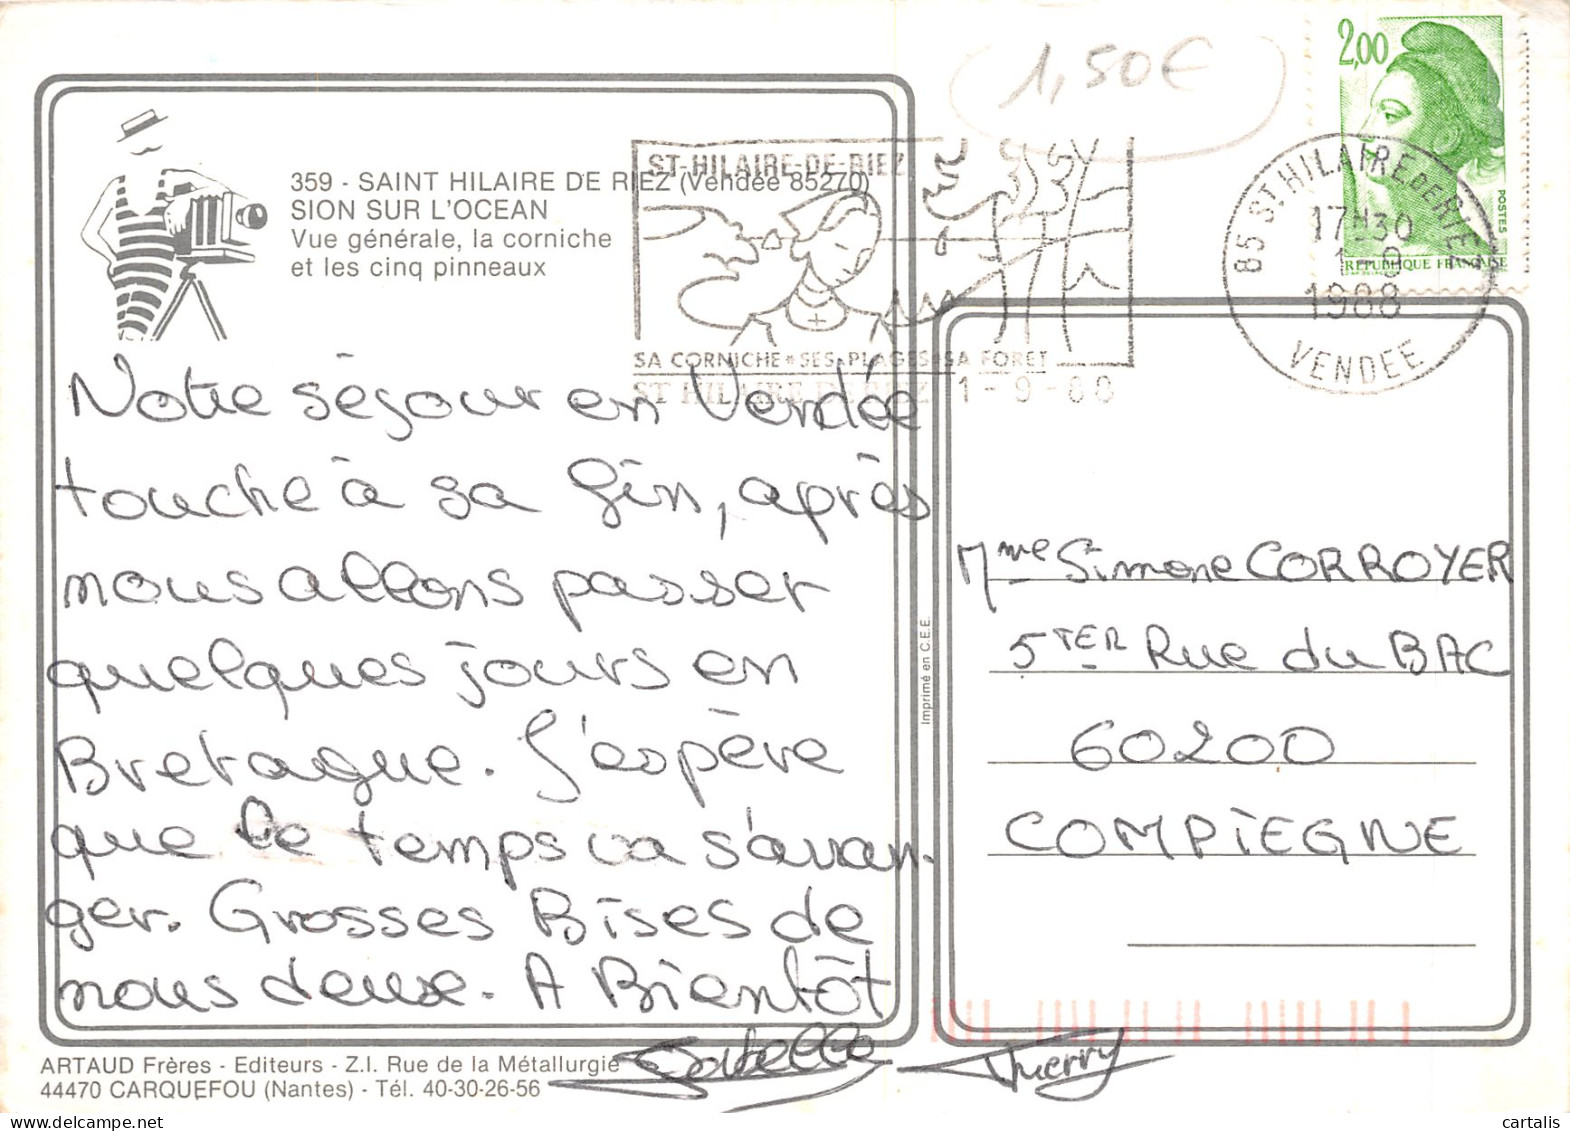 1,50€
2,00
POSTES
REPUBLIQUE FRANÇAISE
85 ST HILAIRE DE RIEZ
17H30
1-9
1988
VENDEE
ST-HILAIRE-DE-RIEZ
SA CORNICHE * SES PLAGES * SA FORET
ST HILAIRE DE RIEZ 1-9-88
359 - SAINT HILAIRE DE RIEZ (Vendée 85270)
SION SUR L'OCEAN
Vue générale, la corniche
et les cinq pinneaux
Notre séjour en Vendée
touche à sa fin, après
nous allons passer
quelques jours en
Bretagne. J'espère
que le temps va s'arran-
ger. Grosses Bises de
nous deux. A Bientôt
Isabelle Thierry
Imprimé en C.E.E.
Mme Simone CORROYER
5 TER Rue du BAC
60200
COMPIEGNE
ARTAUD Frères - Editeurs - Z.I. Rue de la Métallurgie
44470 CARQUEFOU (Nantes) - Tél. 40-30-26-56
cartalis